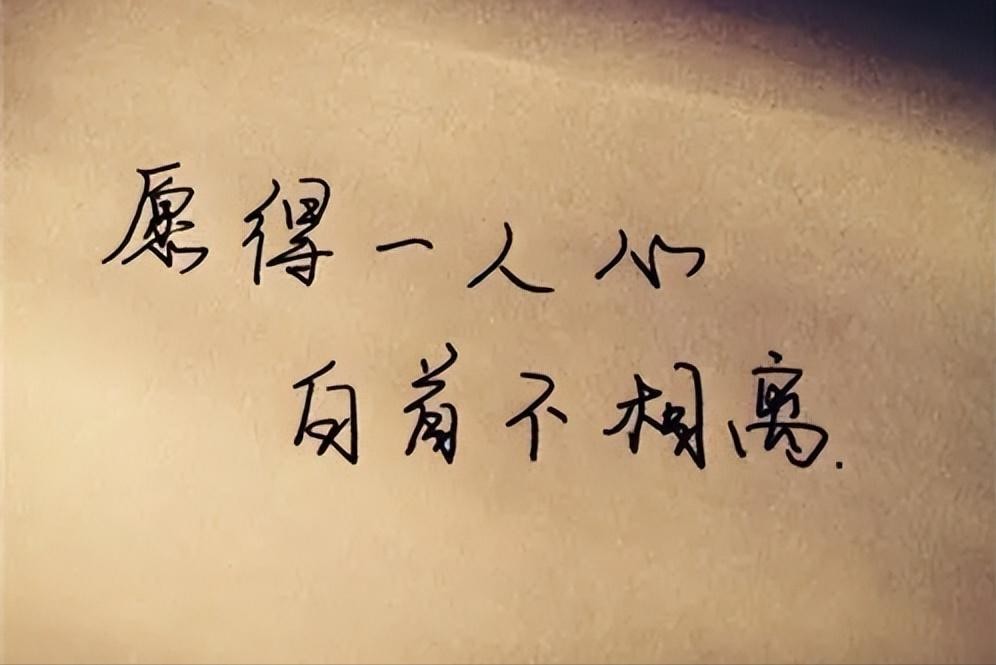 愿得一人心
白首不相离.